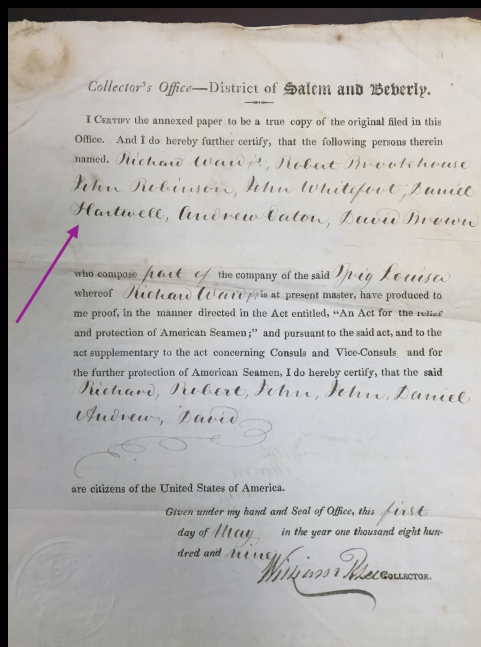 Collector's Office—District of Salem and Beverly.
I CERTIFY the annexed paper to be a true copy of the original filed in this
Office. And I do hereby further certify, that the following persons therein
named, Richard Ward, Robert Brookhouse
John Robinson, John Whitefoot, Daniel
Hartwell, Andrew Eaton, David Brown
who compose part of the company of the said Brig Louisa
whereof Richard Ward is at present master, have produced to
me proof, in the manner directed in the Act entitled, "An Act for the relief
and protection of American Seamen;" and pursuant to the said act, and to the
act supplementary to the act concerning Consuls and Vice-Consuls and for
the further protection of American Seamen, I do hereby certify, that the said
Richard, Robert, John, John, Daniel
Andrew, David
are citizens of the United States of America.
Given under my hand and Seal of Office, this first
day of May in the year one thousand eight hun-
dred and nine
William R Lee COLLECTOR.